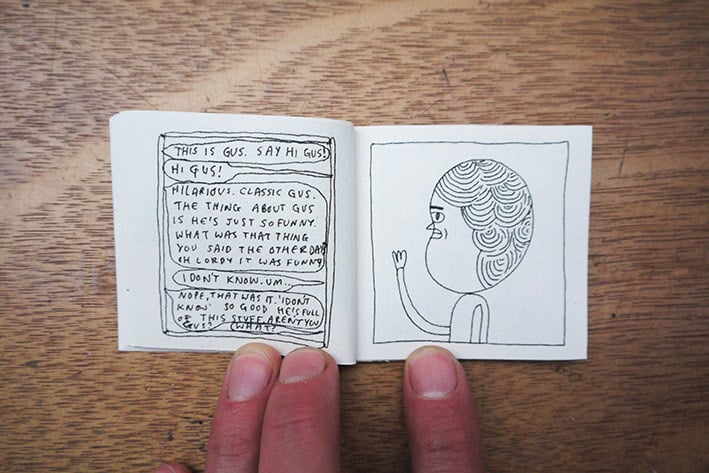 THIS IS GUS. SAY HI GUS!
HI GUS!
HILARIOUS. CLASSIC GUS.
THE THING ABOUT GUS
IS HE'S JUST SO FUNNY.
WHAT WAS THAT THING
YOU SAID THE OTHER DAY
OH LORDY IT WAS FUNNY
I DON'T KNOW. UM...
NOPE, THAT WAS IT. 'I DON'T
KNOW' SO GOOD HE'S FULL
OF THIS STUFF. AREN'T YOU
GUS? WHAT?